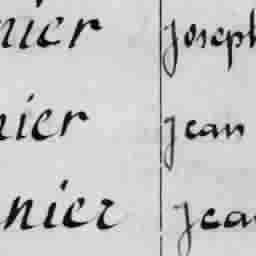 nier joseph
nier jean
nier jean